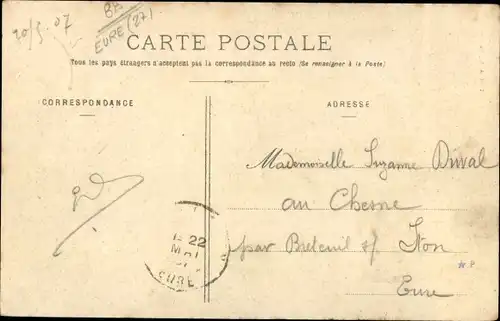 20/5 07
EURE (27)
CARTE POSTALE
Tous les pays étrangers n'acceptent pas la correspondance au recto (Se renseigner à la Poste)
CORRESPONDANCE
ADRESSE
Mademoiselle Suzanne Duval
au Chesne
par Breteuil s/ Iton
Eure
22
MAI
EURE